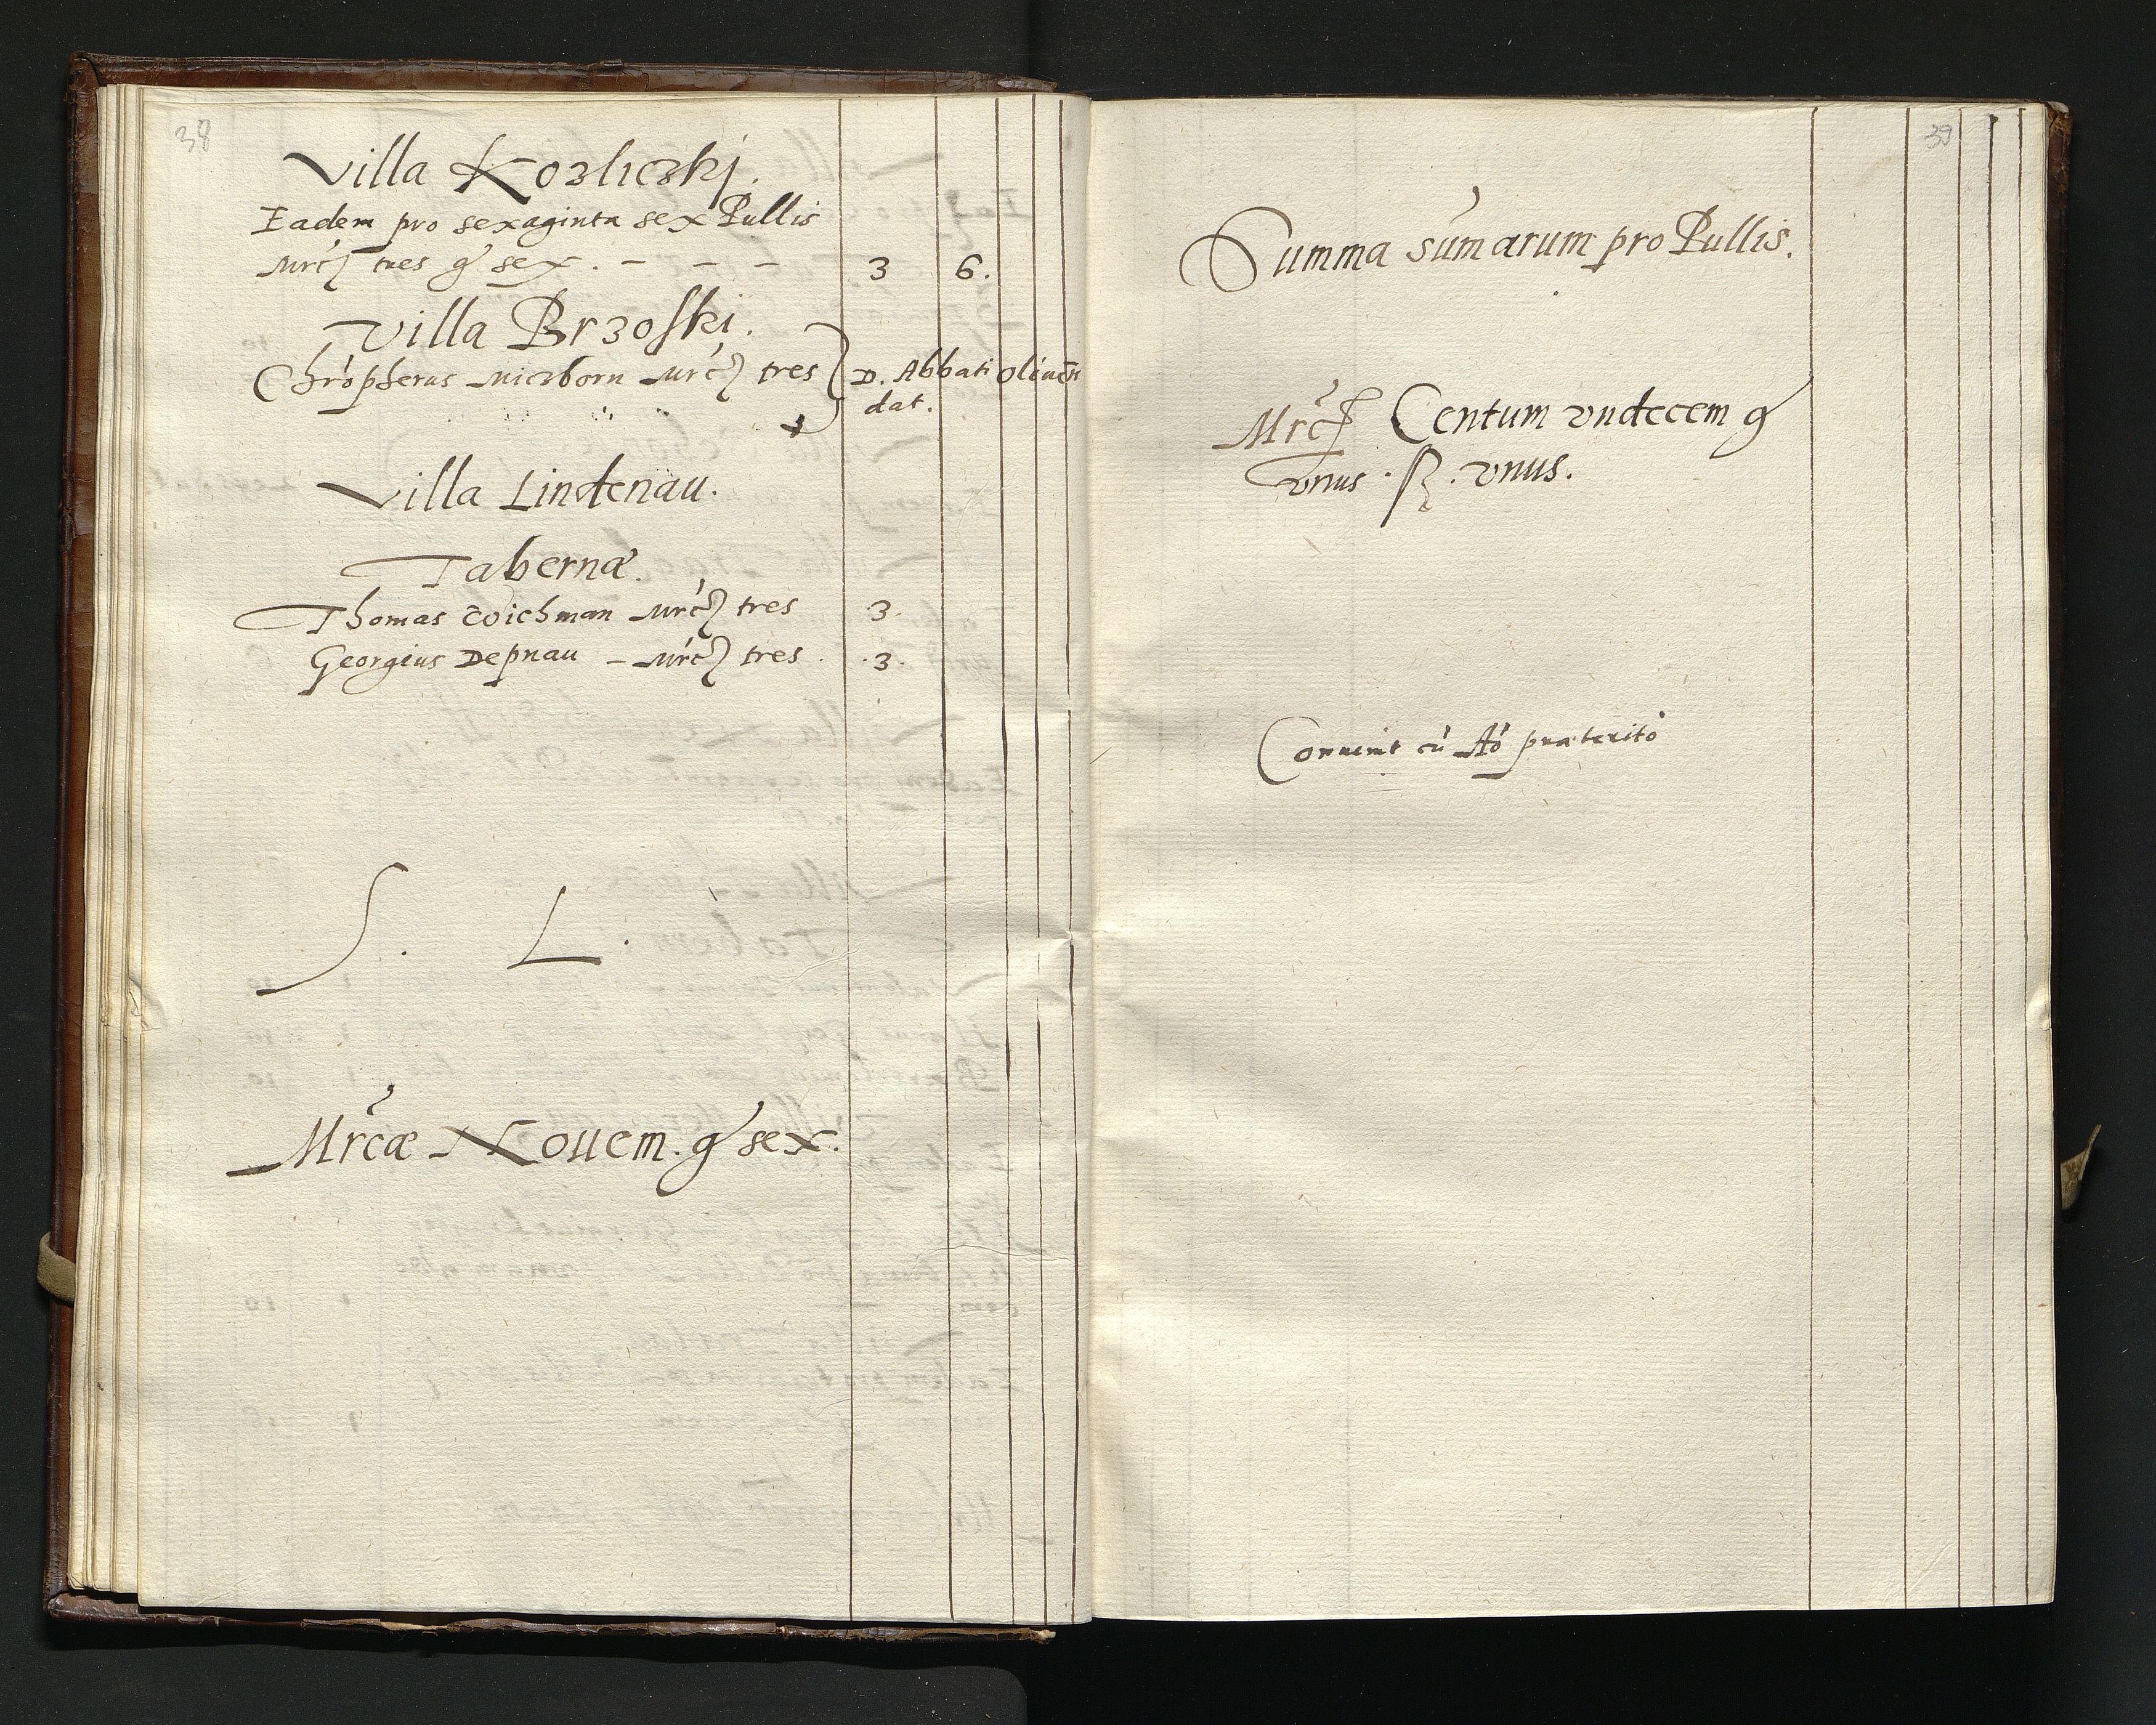 38
Villa Kozliczkj.
Eadem pro sexaginta sex Pullis
Mrc̃ tres g sex . – – – 3 6.
Villa Brzoski.
Chrõpherus Miczborn Mrc̃ tres D. Abbati Oliueñ
dat.
Villa Lindenau.
Tabernæ.
Thomas Wichman Mrc̃ tres 3.
Georgius Depnau – Mrc̃ tres . .3.
S. L.
Mrcæ Nouem. g sex.
39
Summa sumarum pro Pullis.
Mrc̃ Centum vndecem g
vnus . ẞ . vnus.
Conuenit cũ Aõ præterito